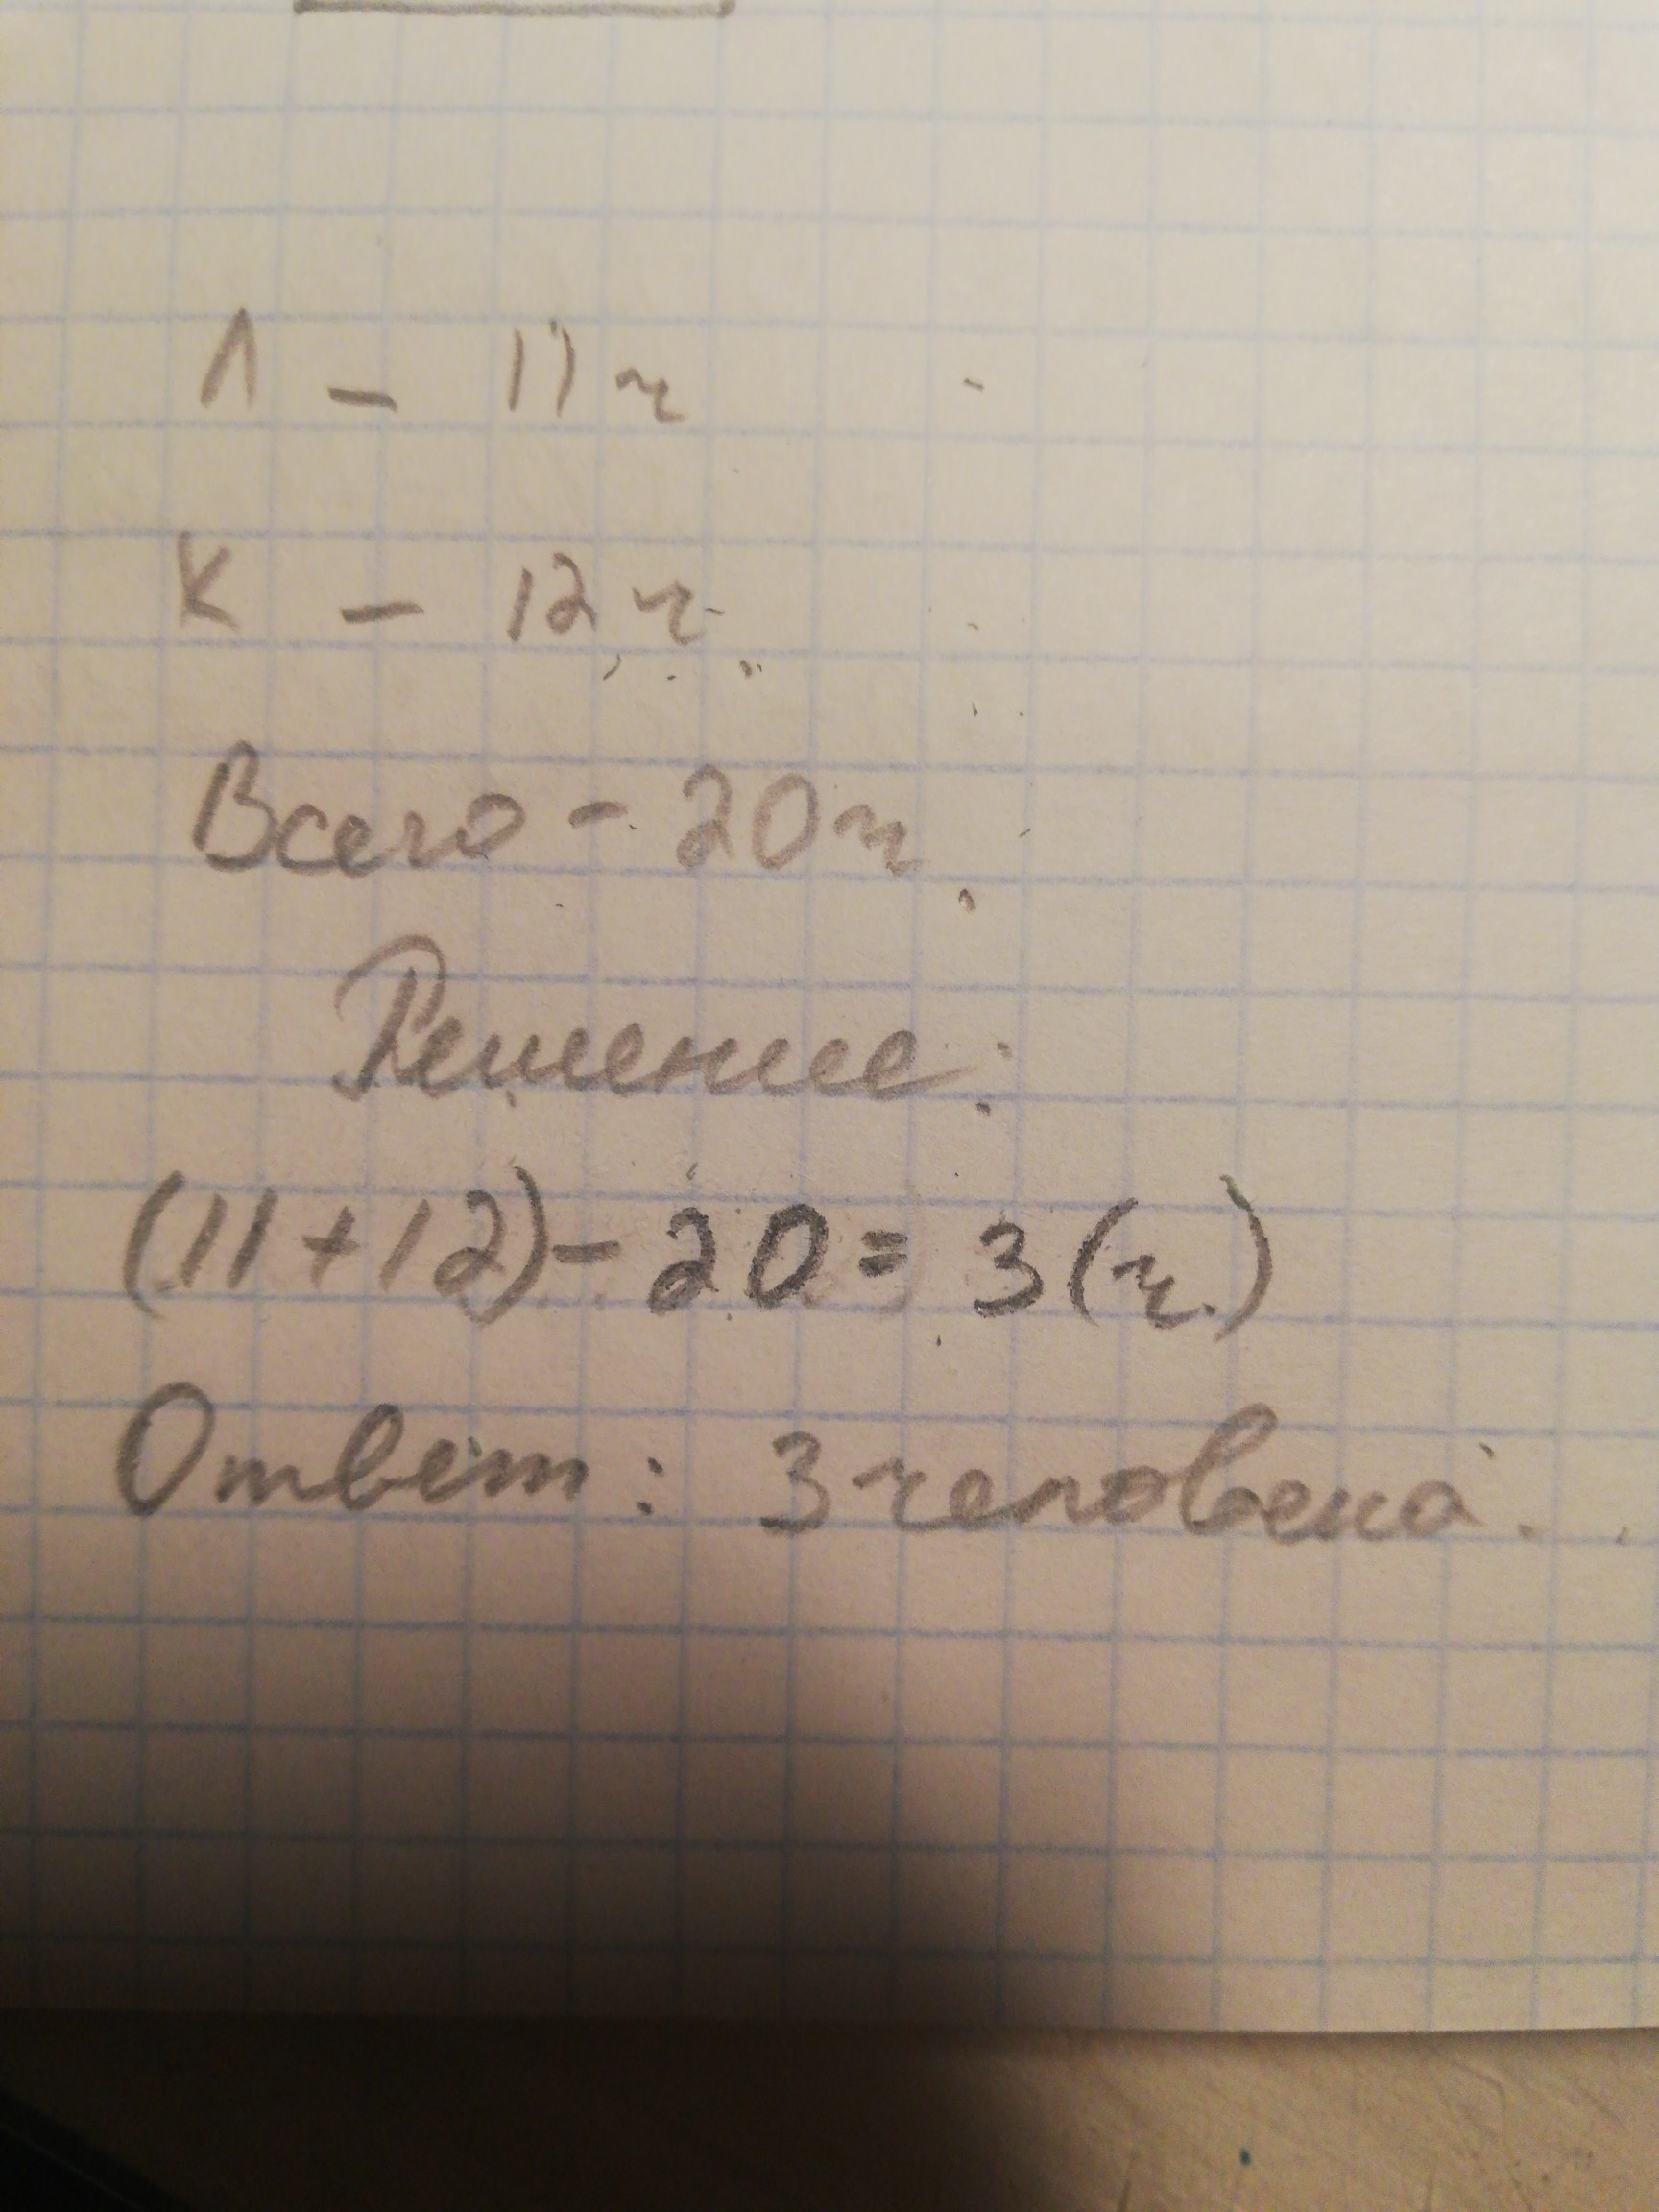 Л - 11 ч
К - 12 ч.
Всего - 20 ч.
Решение:
(11+12)-20=3(ч.)
Ответ: 3 человека.